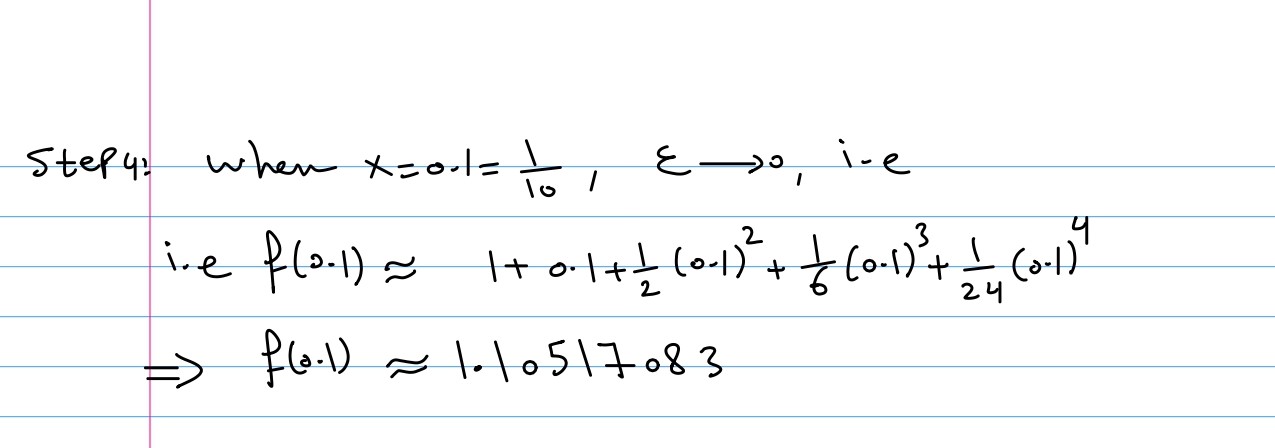 Step 4: when x = 0.1 = 1/10, ε → 0, i-e
i.e f(0.1) ≈ 1 + 0.1 + 1/2 (0.1)² + 1/6 (0.1)³ + 1/24 (0.1)⁴
⇒ f(0.1) ≈ 1.10517083